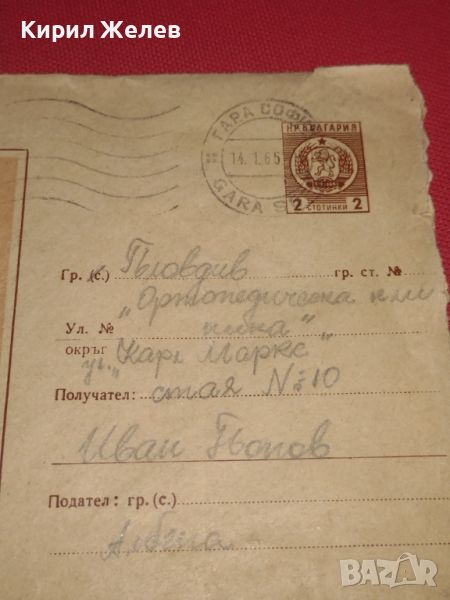 Кирил Желев
ГАРА СОФИ
14.1.65
GARA S
НР БЪЛГАРИЯ
2 СТОТИНКИ 2
Гр. (с.) Пловдив гр. ст. №
„Ортопедическа кли
Ул. № ника"
окръг ул. „Карл Маркс"
Получател: стая № 10
Иван Попов
Подател: гр. (с.)
Албена
BAZAR
.bg